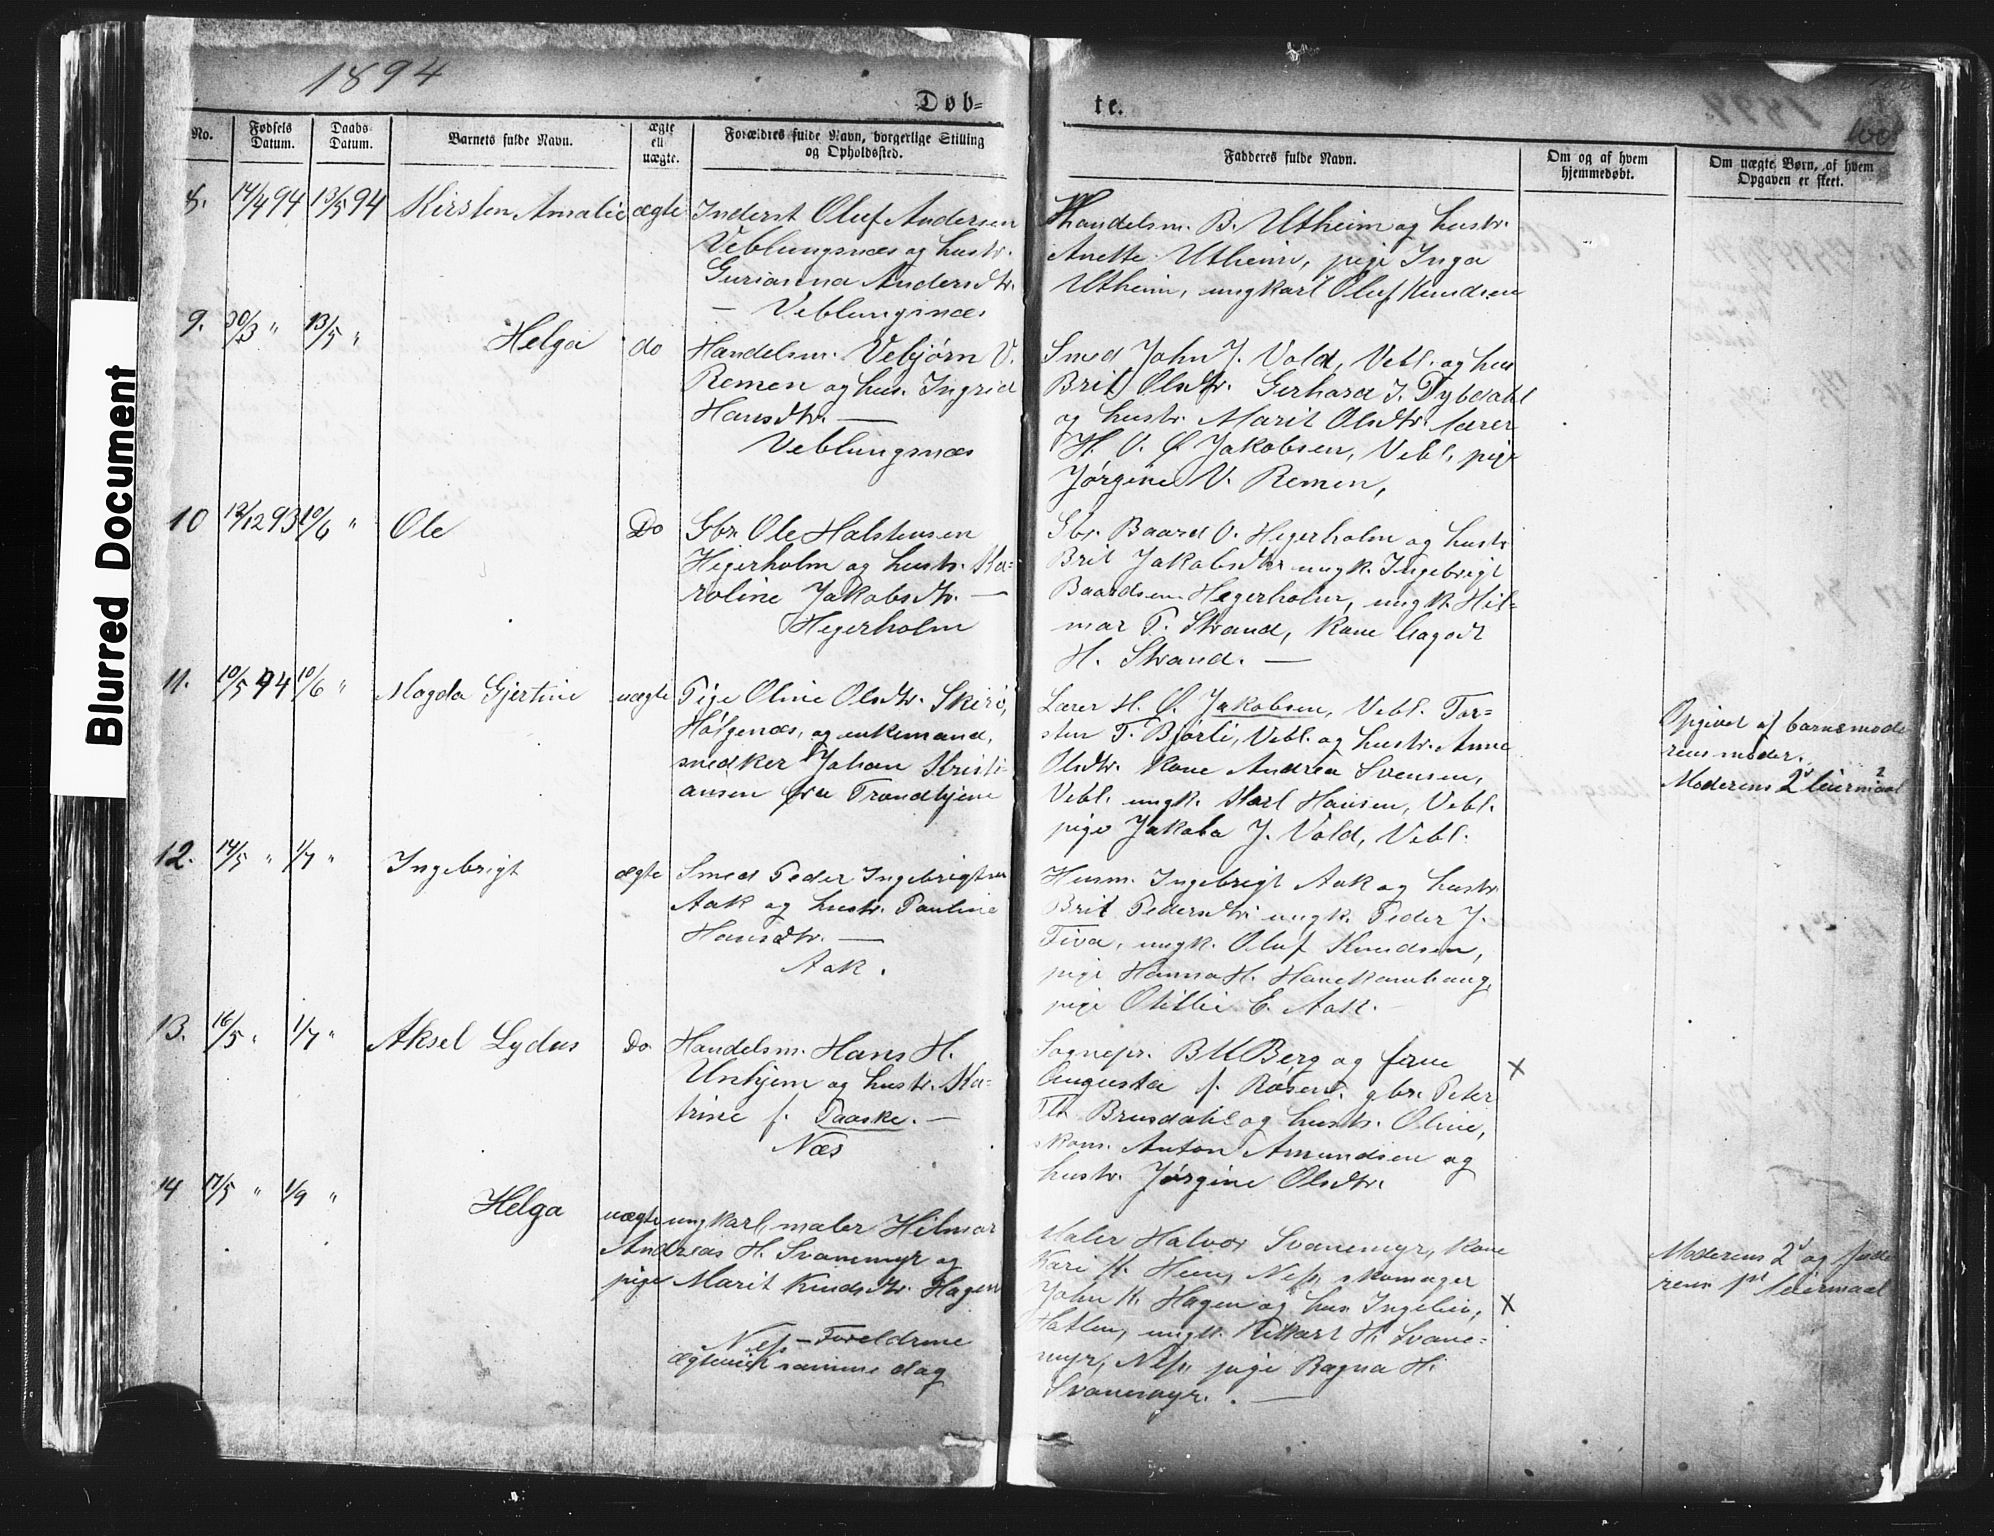 1894
Døb-
te.
1894
No.
Fødsels Datum.
Daabs Datum.
Barnets fulde Navn.
ægte ell uægte.
Forældres fulde Navn, borgerlige Stilling og Opholdssted.
Fadderes fulde Navn.
Om og af hvem hjemmedøbt.
Om uægte Børn, af hvem Opgaven er skeet.
8. 14/4 94 13/5 94 Kirsten Amalie ægte
Inderst Oluf Andersen
Veblungsnæs og hustr.
Gurianna Andersdtr.
— Veblungsnæs
Handelsm. B. Utheim og hustr.
Anette Utheim, pige Inga
Utheim, ungkarl Oluf Knudsen
9. 30/3 " 13/5 " Helga do
Handelsm. Vebjørn V.
Remen og hus. Ingrid
Hansdtr. —
Veblungsnæs
Smed John J. Vold, Vebl. og hus
Brit Olsdtr. Gerhard J. Dybdahl
og hustr. Marit Olsdtr. lærer
H. O. Ø. Jakobsen, Vebl. pige
Jørgine V. Remen,
10 12/12 93 10/6 " Ole Do
Gbr. Ole Halstensen
Hegerholm og hustr. Ka-
roline Jakobsdtr. —
Hegerholm
Gbr. Baard O. Hegerholm og hustr
Brit Jakobsdtr ungk. Ingebrigt
Baardsen Hegerholm, ungk. Hil-
mar T. Strand, Kone Aagodt
H. Strand. —
11. 10/5 94 10/6 " Magda Gjertine uægte
Pige Oline Olsdtr. Skirø,
Holgenæs, og enkemand,
snedker Johan Kristi-
ansen fra Trondhjem
Lærer H. Ø. Jakobsen, Vebl. Tor-
sten T. Bjørli, Vebl. og hustr. Anne
Olsdtr. Kone Andrea Svensen,
Vebl. ungk. Karl Hansen, Vebl.
pige Jakoba J. Vold, Vebl.
Opgivet af barnemode
rens moder.
Moderens 2 leiermaal
12. 14/5 " 1/7 " Ingebrigt ægte
Smed Peder Ingebrigtsen
Aak og hustr. Pauline
Hansdtr. —
Aak.
Husm. Ingebrigt Aak og hustr.
Brit Pedersdtr. ungk. Peder J.
Tiva, ungk. Oluf Knudsen,
pige Hanna H. Hanekamhaug,
pige Otillie E. Aak. —
13. 16/5 " 1/7 " Aksel Lydus Do
Handelsm. Hans H.
Unhjem og hustr. Ka-
trine f. Daaske. —
Næs
Sognepr. B U Berg og frue
Augusta f. Rosen. gbr. Peter
Brusdahl og hustr. Oline,
skom. Anton Amundsen og
hustr. Jørgine Olsdtr.
X
14 17/5 " 1/9 " Helga uægte
ungkarl, maler Hilmar
Andreas H. Svanemyr og
pige Marit Knudsdtr. Hagen
Næs — Foreldrene
ægteviet samme dag
Maler Halvor Svanemyr, Kone
Kari K. Hen, Næs, skomager
John K. Hagen og hus Ingebor,
Hatlen, ungk. Rikart H. Svane-
myr, Næs, pige Ragna H.
Svanemyr. —
X
Moderens 2 og fade
rens 1st leiermaal
Blurred Document